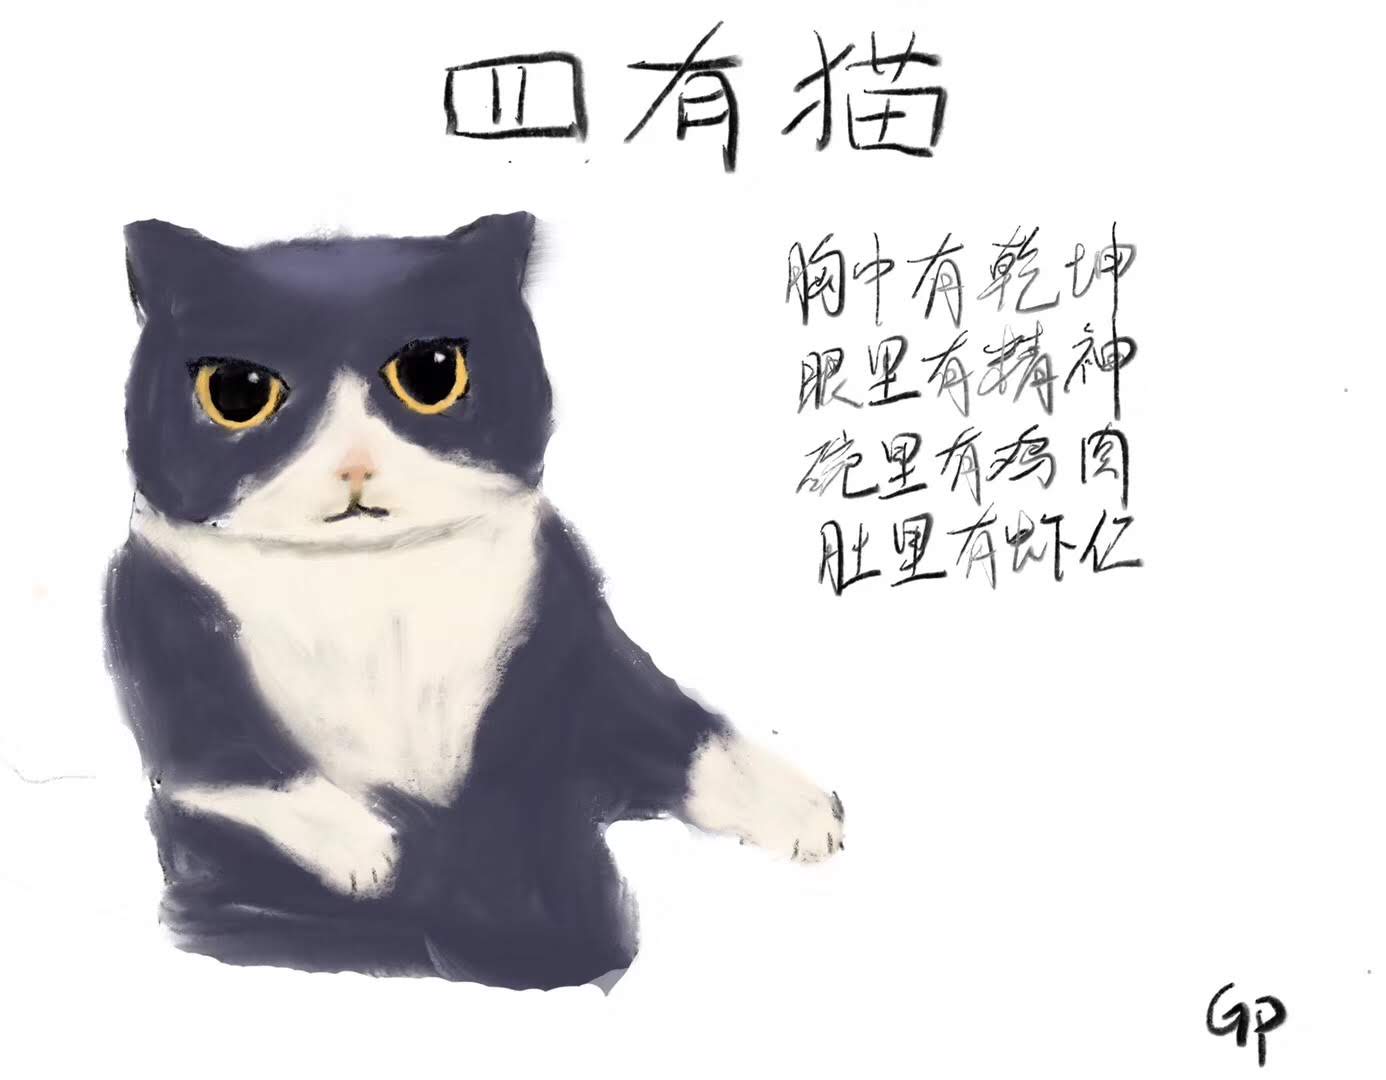 四有猫
胸中有乾坤
眼里有精神
碗里有鸡肉
肚里有虾仁
GP